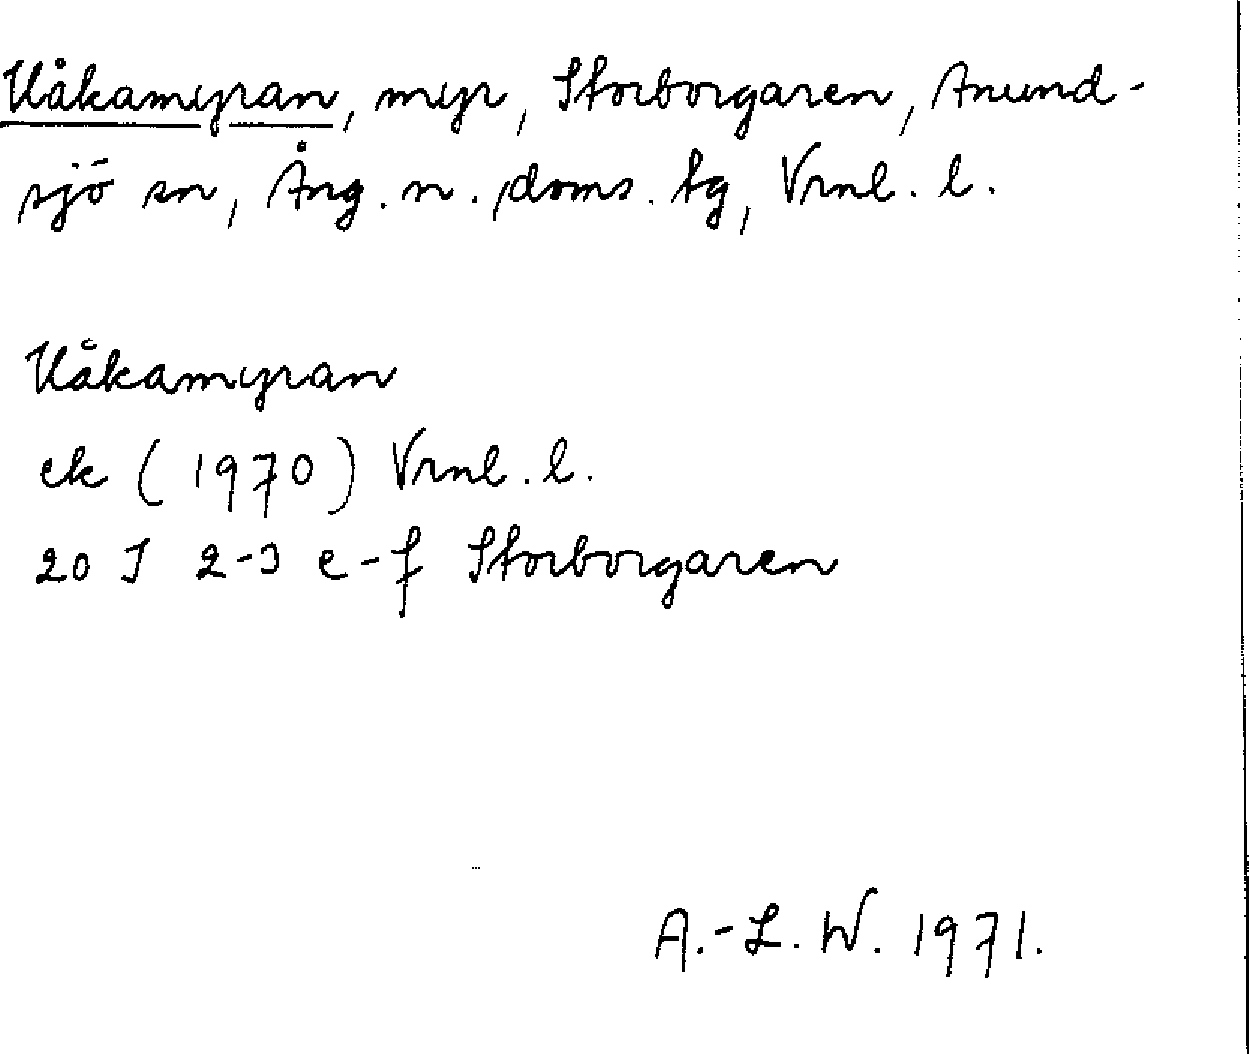 Kåkamyran, myr, Storborgaren, Anund-
sjö sn, Ång. n. doms. tg, Vrml. l.
Kåkamyran
ek (1970) Vrml. l.
20 I 2-3 e-f Storborgaren
A.-L. W. 1971.